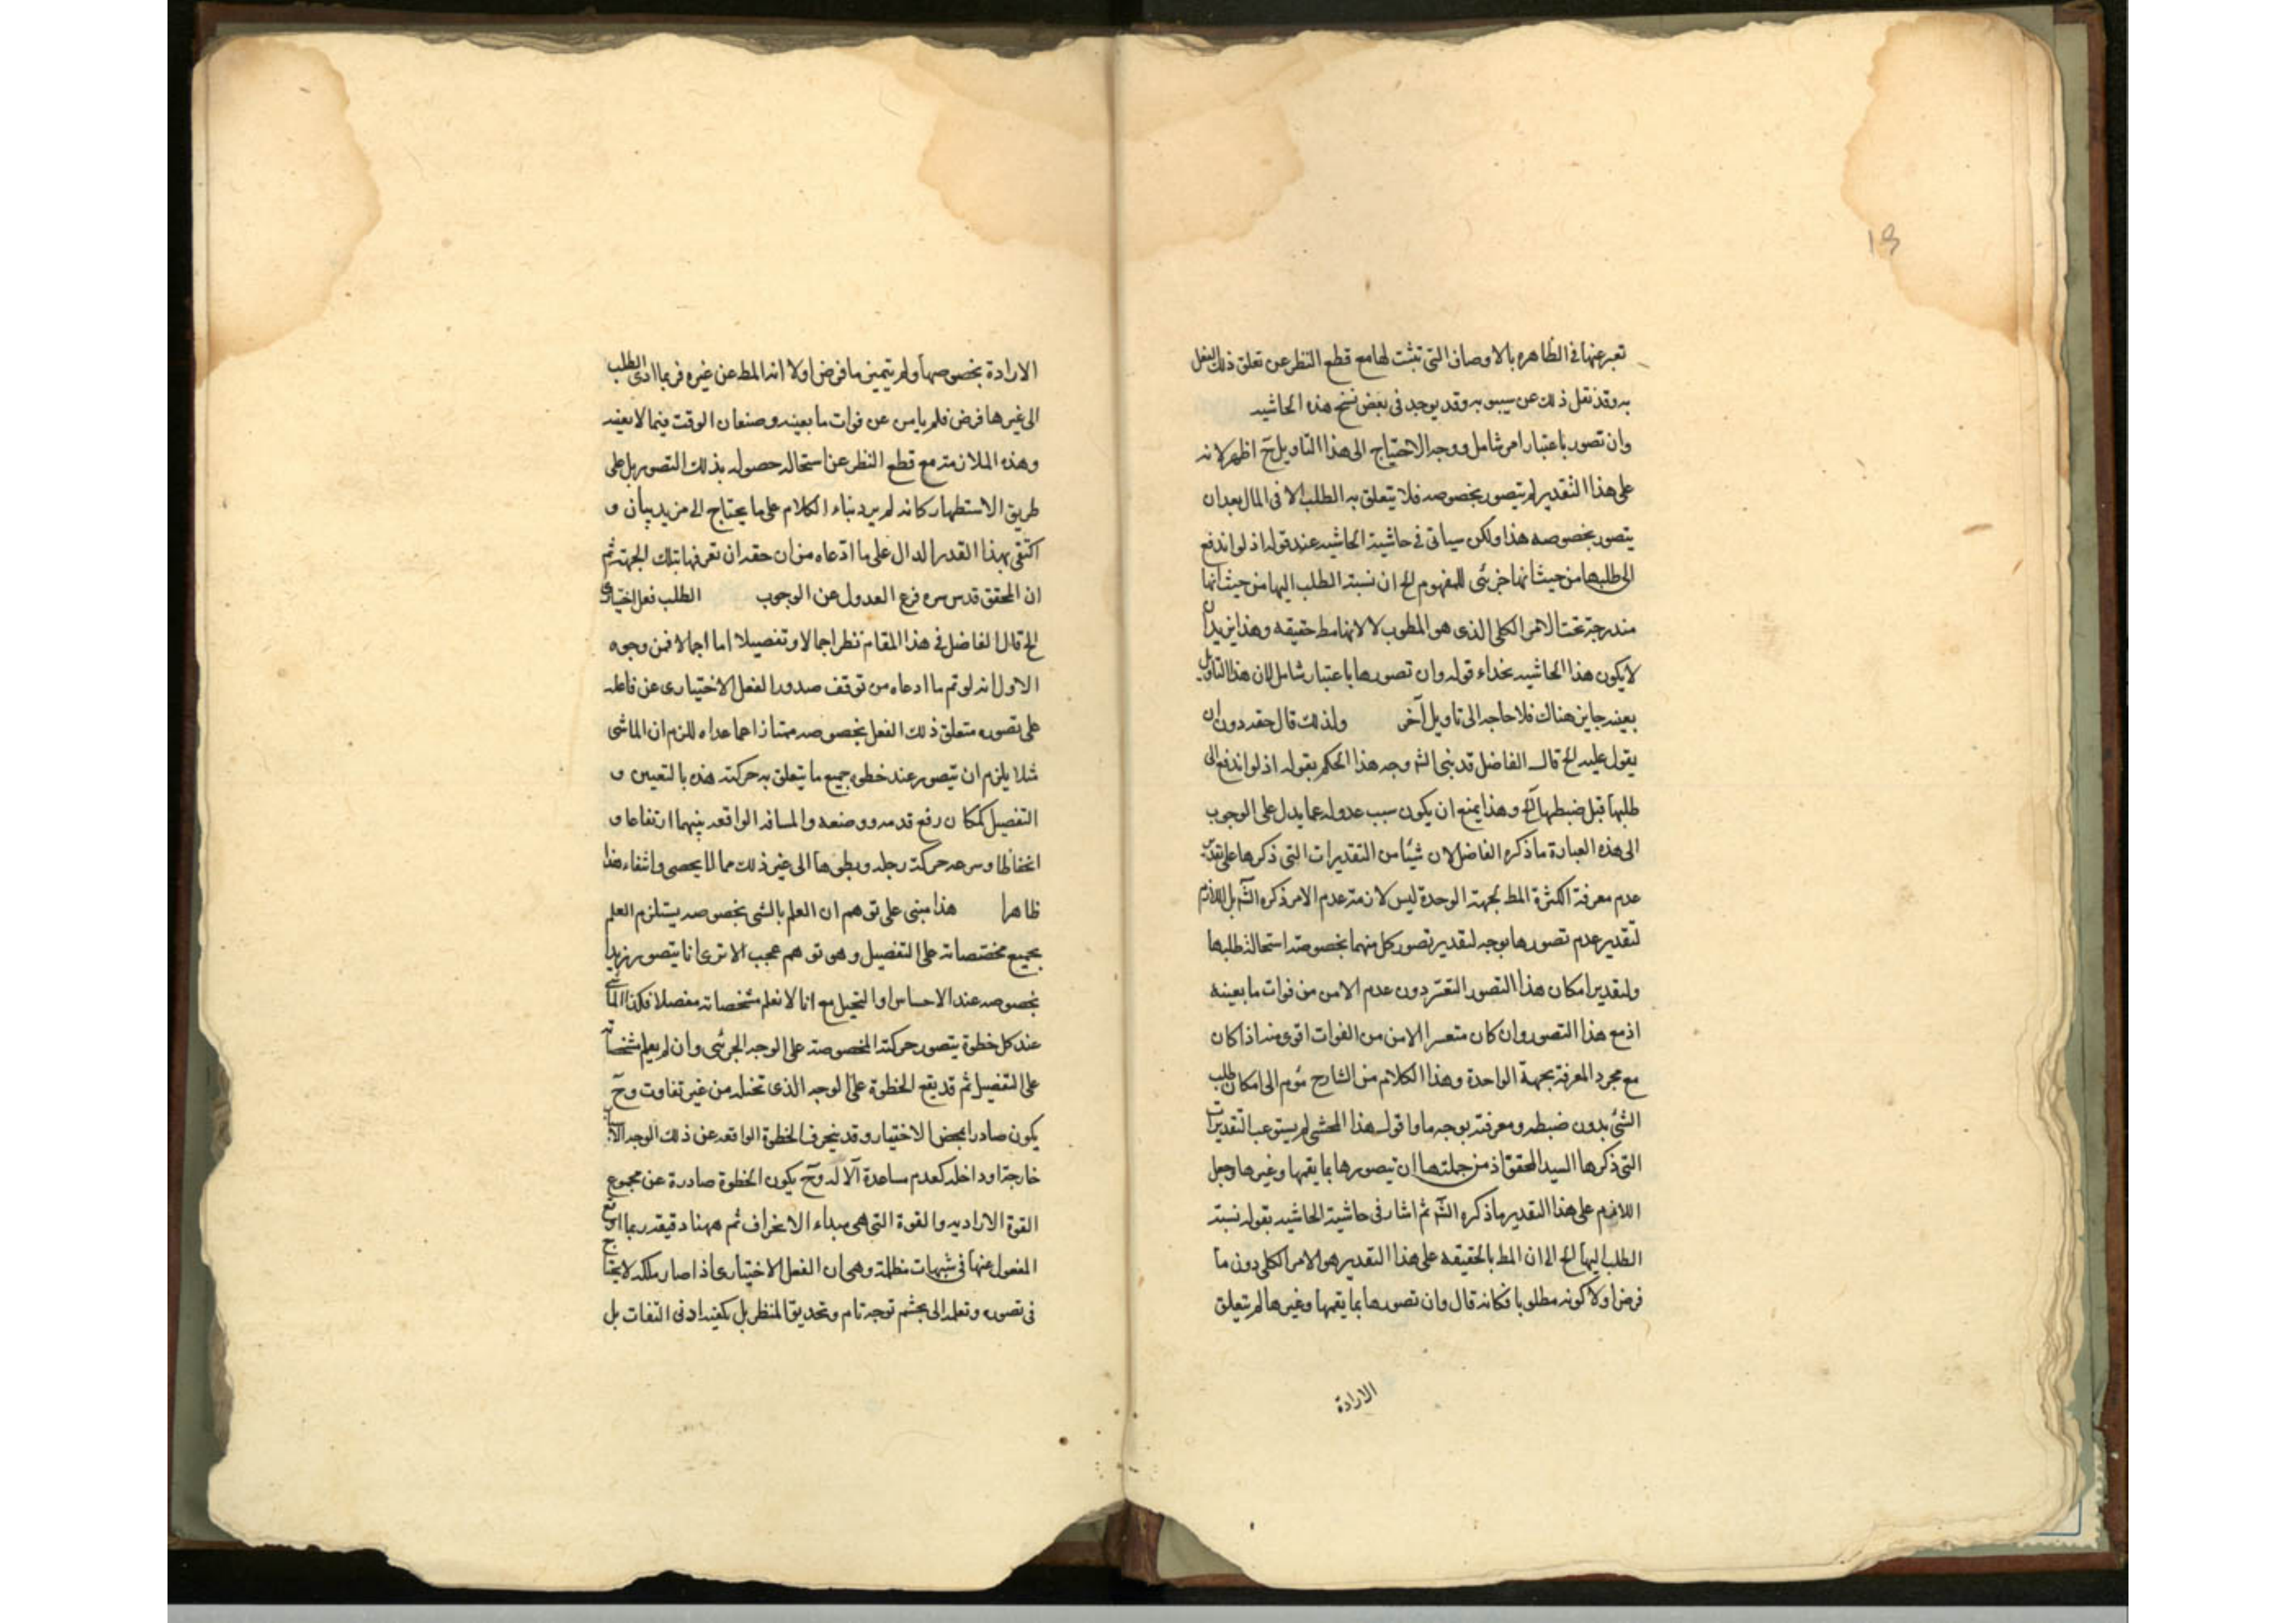 18
تعبر عنها فى الظاهره بالاوصاف التى تثبت لها مع قطع النظر عن تعلق ذلك الفعل
به وقد نقل ذلك عن سيبويه وقد يوجد فى بعض نسخ هذه الحاشيه
وان تصور باعتبار امر شامل ووجه الاحتياج الى هذا التاويل ح اظهر لانه
على هذا التقدير لم يتصور بخصوصه فلا يتعلق به الطلب الا فى المال بعد ان
يتصور بخصوصه هذا ولكن سياتى فى حاشية الحاشيه عند قوله اذ لو اندفع
الى طلبها من حيث انها جزئى للمفهوم الخ ان نسبة الطلب اليها من حيث انها
مندرجة تحت الامر الكلى الذى هو المطوب لا لانها مط حقيقه وهذا يريد ان
لا يكون هذا الحاشيه بحذاء قوله وان تصورها باعتبار شامل لان هذا التاويل
بعينه جايز هناك فلا حاجه الى تاويل آخر ولذلك قال حقه دون ان
يقول عليه الخ قال الفاضل قد بنى الشه وجه هذا الحكم بقوله اذ لو اندفع الى
طلبها قبل ضبطها الخ وهذا يمنع ان يكون سبب عدوله عما يدل على الوجوب
الى هذه العبارة ما ذكره الفاضل لان شيئا من التقديرات التى ذكرها على تقدير
عدم معرفة الكثرة المط بجهة الوحدة ليس لازمة عدم الامر ذكره الشه بل اللازم
لتقدير عدم تصورها بوجه لتقدير تصور كل منهما بخصوصة استحالة طلبها
ولتقدير امكان هذا التصور التعسر دون عدم الامن من فوات ما يعينه
اذ مع هذا التصور وان كان متعسرا الامن من الفوات اقوى منه اذا كان
مع مجرد المعرفة بجهة الواحدة وهذا الكلام من الشارح موم الى امكان طلب
الشئ بدون ضبطه ومعرفته بوجه ما واقول هذا المحشى لم يستوعب التقديرات
التى ذكرها السيد المحقق اذ من جملتها ان تيصورها بما يقمها وغيرها وجعل
اللازم على هذا التقدير ما ذكره الشه ثم اشار فى حاشية الحاشيه بقوله نسبة
الطلب اليها الخ الى ان المط بالحقيقه على هذا التقدير هو الامر الكلى دون ما
فرض اولا كونه مطلوبا فكانه قال وان تصورها بما يقمها وغيرها لم يتعلق
الارادة
الارادة بخصوصها ولم يتميز ما فرض اولا انه المط عن غيره فربما ادى الطلب
الى غيرها فرض فلم يامن عن فوات ما يعينه وصنعان الوقت فيما لا يعينه
وهذه الملازمة مع قطع النظر عن استحاله حصوله بذلك التصور بل على
طريق الاستظهار كانه لم يرد بناء الكلام على ما يحتاج الى مزيد بيان و
اكتفى بهذا القدر الدال على ما ادّعاه من ان حقه ان تعرفها بتلك الجهة ثم
ان المحقق قدس سره فرع العدول عن الوجوب الطلب فعل اختيارى
الخ قال الفاضل فى هذا المقام نظر اجمالا وتفصيلا اما اجمالا فمن وجوه
الاول انه لو تم ما ادعاه من توقف صدور الفعل الاختيارى عن فاعله
على تصوره متعلق ذلك الفعل بخصوصه ممتازا عما عداه للزم ان الماشى
مثلا يلزم ان يتصور عند خطوه جميع ما يتعلق به حركته هذه بالتعيين و
التفصيل كمكان رفع قدمه ووضعه والمسافه الواقعه بينهما ارتفاعا و
انخفاظا وسرعه حركة رجله وبطوها الى غير ذلك مما لا يحصى وانتفاء هذا
ظاهرا هذا مبنى على توهم ان العلم بالشى بخصوصه يستلزم العلم
بجميع مختصاته على التفصيل وهو توهم عجب الا ترى انا يتصور زيدا
بخصوصه عند الاحساس او التخيل مع انا لا نعلم مشخصاته مفصلا فكذا الماشى
عند كل خطوة يتصور حركته المخصوصة على الوجه الجزئى وان لم يعلم مشخصاته
على التفصيل ثم قد يقع الخطوة على الوجه الذى تخيله من غير تفاوت وح
يكون صادرا بمحض الاختيار وقد ينحرف الخطوة الواقعه عن ذلك الوجه لاسباب
خارجة او داخله كعدم مساعدة الآله وح يكون الخطوة صادرة عن مجموع
القوة الاراديه والقوة التى هى مبداء الانحراف ثم ههنا دقيقه ربما اوقع
الغفول عنها فى شبهات مظلمة وهى ان الفعل الاختيارى اذا صار ملكه لا يحتاج
فى تصوره وتعلمه الى تجشم توجه تام وتحديق المنظر بل يكفيه ادنى التفات بل